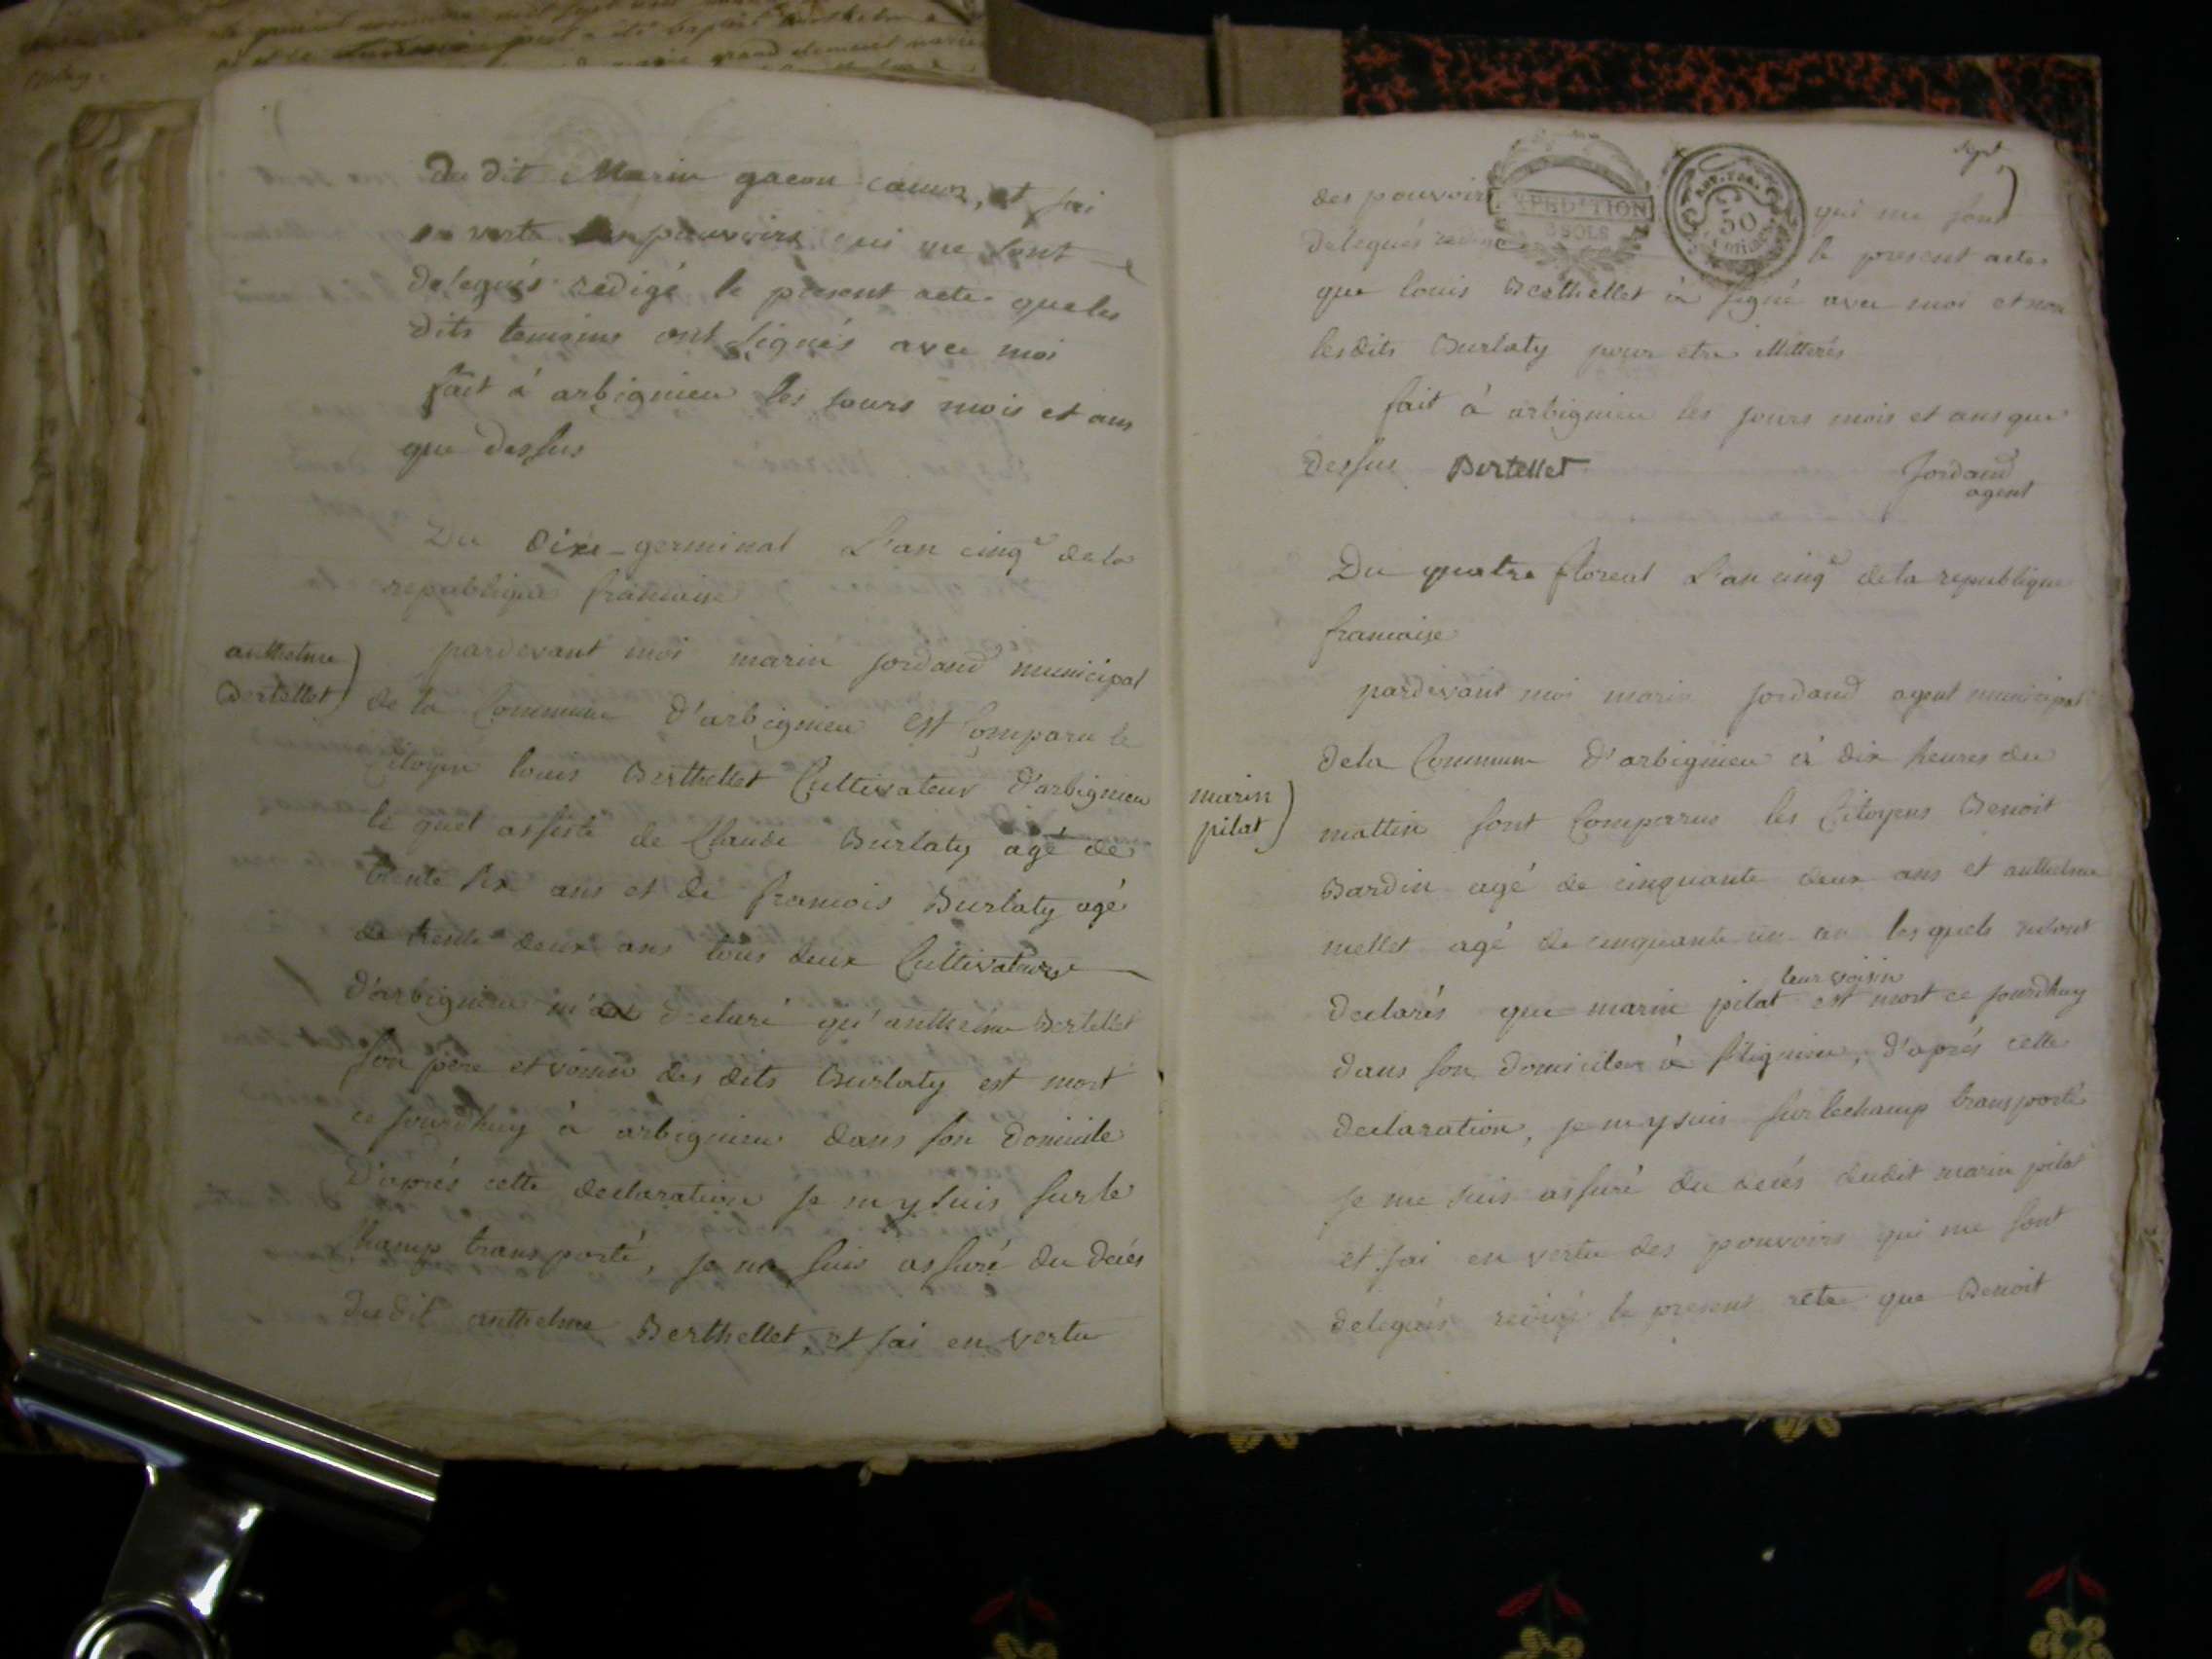 du dit Marin gacon camoz, et jai
en vertu des pouvoirs qui me sont
delegués redigé le present acte que les
dits temoins ont signés avec moi
fait à arbignieu les jours mois et ans
que dessus
Du dixe germinal L'an cinq^e de la
republique francoise
anthelme
Bertellet
pardevant moi marin jordand municipal
de la Commune d'arbignieu est Comparu le
Citoyen louis Berthellet Cultivateur d'arbignieu
le quel assisté de Claude Burlaty agé de
trente six ans et de francois Burlaty agé
de trente deux ans tous deux Cultivateurs
d'arbignieu m'a declaré qu'anthelme Bertellet
son père et voisin des dits Burlaty est mort
ce jourdhuy à arbignieu dans son domicile
D'aprés cette declaration je m'y suis sur le
Champ transporté, je me suis assuré du decés
dudit anthelme Berthellet, et jai en vertu
sept
des pouvoirs qui me sont
EXPEDITION
3 SOLS
50
Centimes
delegués redigé le present acte
que louis Berthellet à signé avec moi et non
lesdits Burlaty pour etre illitterés
fait à arbignieu les jours mois et ans que
dessus Bertellet Jordand
agent
Du quatre floreal L'an cinq^e de la republique
francoise
pardevant moi marin jordand agent municipal
de la Commune d'arbignieu à dix heures du
marin
pilat
mattin sont Comparus les Citoyens Benoit
Bardin agé de cinquante deux ans et anthelme
mellet agé de cinquante un an lesquels m'ont
leur voisin
declarés que marin pilat est mort ce jourdhuy
dans son domicile à sitignieu, d'aprés cette
declaration, je m'y suis sur lechamp transporté
je me suis assuré du decés dudit marin pilat
et jai en vertu des pouvoirs qui me sont
delegués redigé le present acte que Benoit